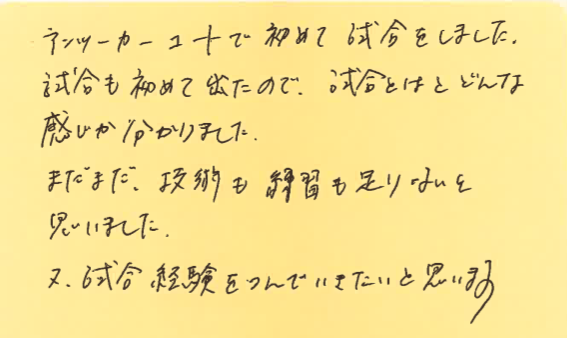 アンツーカーコートで初めて試合をしました.
試合も初めて出たので、試合とはとどんな
感じか分かりました.
まだまだ、技術も練習も足りないと
思いました.
又、試合経験をつんでいきたいと思います